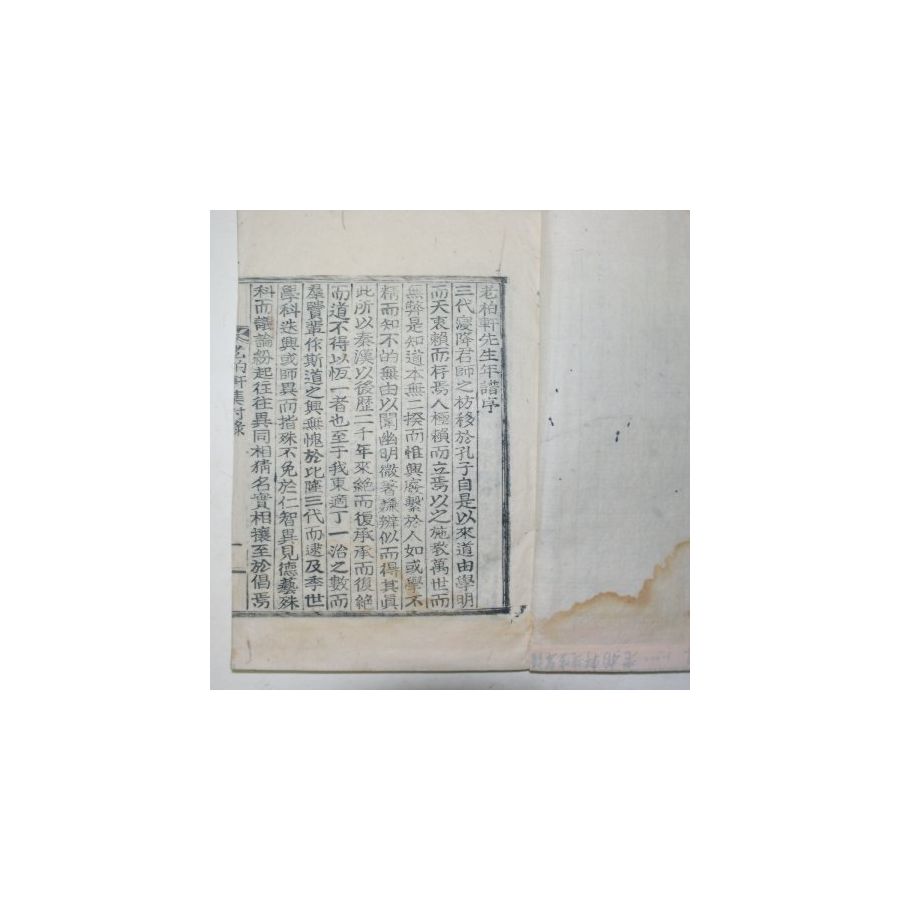 老柏軒先生年譜序
三代寢降君師之枋移於孔子自是以來道由學明
而天衷賴而存焉人極賴而立焉以之施敎萬世而
無弊是知道本無二揆而惟興廢繫於人如或學不
精而知不的無由以闡幽明微著嫌辨似而得其眞
此所以秦漢以後歷二千年來絶而復承承而復絶
而道不得以恆一者也至于我東適丁一治之數而
羣賢輩作斯道之興無愧於比隆三代而逮及季世
學科迭興或師異而指殊不免於仁智異見德藝殊
科而議論紛起往往異同相猜名實相攘至於倡焉
老柏軒集附錄
一